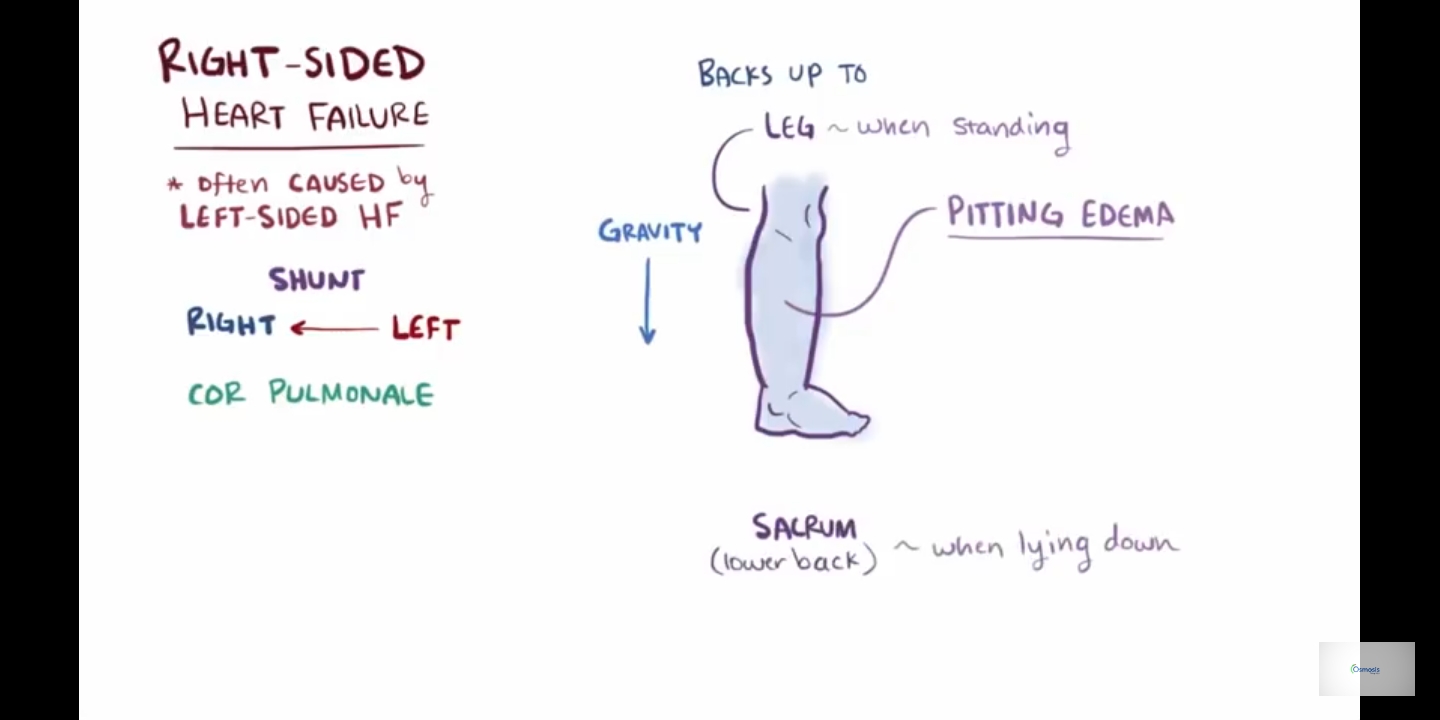 RIGHT-SIDED
HEART FAILURE
* often CAUSED by
LEFT-SIDED HF
SHUNT
RIGHT ← LEFT
COR PULMONALE
BACKS UP TO
LEG ~ when standing
GRAVITY
PITTING EDEMA
SACRUM
(lower back) ~ when lying down
Osmosis